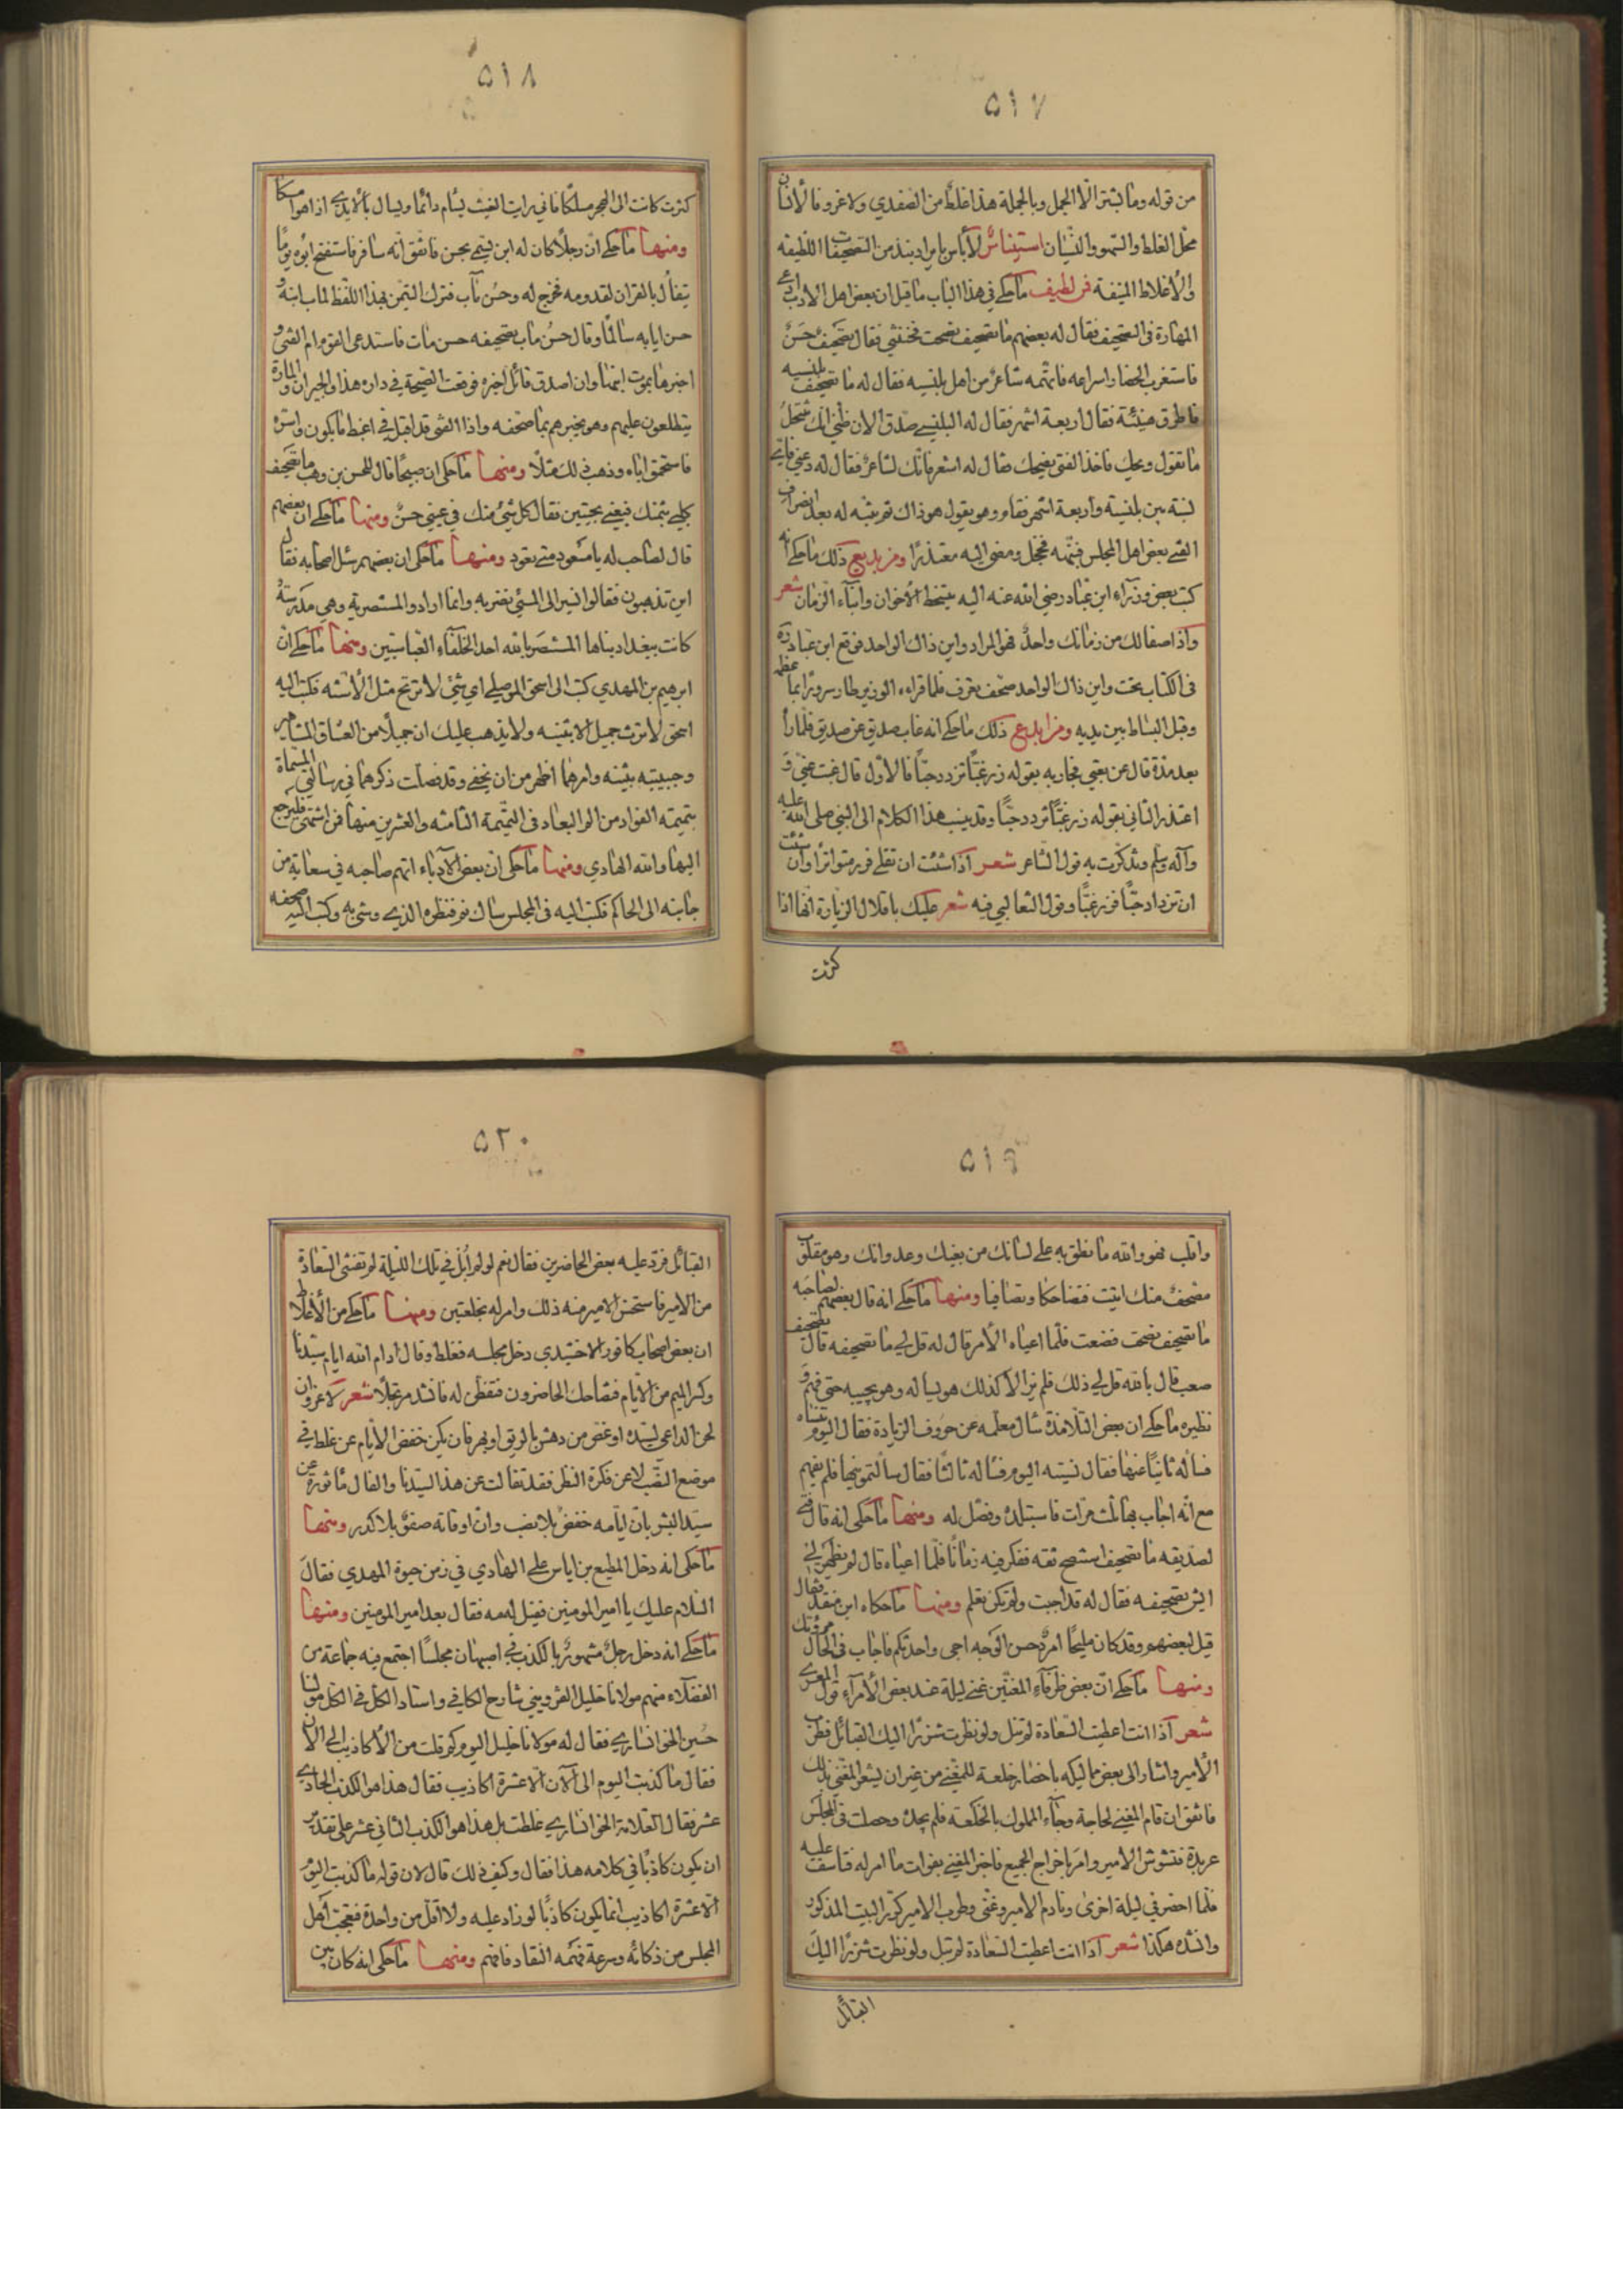 ٥١٧
من قوله وما بثينة الا الجمل وبالجملة هذا غلط من الصفدي ولا غرو فالانسان
محل الغلط والسهو والنسيان استيناس لا بأس بايراد نبذ من التصحيفات اللطيفة
والاغلاط المنيفة فمن لطيف ما حكي في هذا الباب ما قيل ان بعض اهل الادب ادعى
المهارة في التصحيف فقال له بعضهم ما تصحيف نصحت فخنتني فقال تصحيف حسن
فاستغرب الحضار اسراعه فاتهمه شاعر من اهل بلنسيه فقال له ما تصحيف بلنسيه
فاطرق هنيئة فقال اربعة اشهر فقال له البلنسي صدق الان ظني انك تنتحل
ما تقول ويحك فاخذ الفتى يضحك فقال له اشعر فانك لشاعر فقال له دعني فاي
نسبة بين بلنسية واربعة اشهر فقام وهو يقول هو ذاك ثم تنبه له بعد انصراف
الفتى بعض اهل المجلس فتنبه فخجل ومضى اليه معتذرا ومن بديع ذلك ما حكي انه
كتب بعض وزراء ابن عباد رضي الله عنه اليه بتسخط الاخوان وابناء الزمان شعر
واذا صفا لك من زمانك واحد فهو المراد واين ذاك الواحد فوقع ابن عباد رده
في الكتاب تحت واين ذاك الواحد صحف تعرف فلما قراءه الوزير طار سرورا بما عظم
وقبل البساط بين يديه ومن ابدع ذلك ما حكي انه غاب صديق عن صديق فلما راه
بعد مدة قال عن بغتي فجاوبه بقوله زر غبا تزدد حبا فالاول قال غبت عني و
اعتذر الثاني بقوله زر غبا تزدد حبا وقد ينسب هذا الكلام الى النبي صلى الله عليه
وآله وسلم وتذكرت به قول الشاعر شعر اذا شئت ان تقلى فزر متواترا وان شئت
ان تزداد حبا فزر غبا وقول الثعالبي فيه شعر عليك باقلال الزيارة انها اذا
كثرت
٥١٨
كثرت كانت الى الهجر مسلكا فاني رايت الغيث يسأم دائما ويسأل بالايدي اذا هو امسكا
ومنها ما حكي ان رجلا كان له ابن يسمى بحسن فاتفق انه سافر فاستفتح ابوه يوما
يتفأل بالقران لقدومه فخرج له وحسن مآب فترك التيمن بهذا اللفظ لماب ابنه و
حسن ايابه سالما وقال حسن ماب تصحيفه حسن مات فاستدعى القوم ام الفتى و
اخبرها بموت ابنها وان اصدق قائل اخبره فوقعت الصيحة في داره هذا والجيران والمارة
يتطلعون عليهم وهو يخبرهم بما صحفه واذا الفتى قد اقبل في اغبط ما يكون واسره
فاستحمق اباه وذهب ذلك مثلا ومنها ما حكى ان صبيحا قال للحسن بن وهب ما تصحيف
كلي بثمنك فبغني بجنتين فقال كل شئ منك في عيني حسن ومنها ما حكي ان بعضهم
قال لصاحب له يا مسعود متى تعود ومنها ما حكى ان بعضهم سئل اصحابه فقال
اين تذهبون فقالوا نسير الى المسئ نضربه وانما ارادوا المستنصرية وهي مدرسة
كانت ببغداد بناها المستنصر بالله احد الخلفاء العباسيين ومنها ما حكي ان
ابرهيم بن المهدي كتب الى اسحق الموصلي اي شئ لا ترتج مثل الاسنه فكتب اليه
اسحق لا ترث جميل الا بثينه ولا يذهب عليك ان جميلا من العشاق المشاهير
وحبيبته بثينه وامرهما اظهر من ان يخفى وقد فصلت ذكرهما في رسالتي المسماة
بتميمة الفؤاد من الم البعاد في التميمة الثامنه والعشرين منها فمن اشتهى فليرجع
اليها والله الهادي ومنها ما حكى ان بعض الادباء اتهم صاحبه في سعاية من
جانبه الى الحاكم فكتب اليه في المجلس سال فوقنظره الذي وشى به وكتب اليه صحفه
٥١٩
واقلب فهو والله ما نطق به على لسانك من بغيك وعدوانك وهو مقلوب
مصحف منك اتيت فتضاحكا وتصافيا ومنها ما حكي انه قال بعضهم لصاحبه
ما تصحيف نصحت فضعت فلما اعياه الامر قال له قل لي ما تصحيفه قال تصحيف
صعب قال بالله قل لي ذلك فلم يزالا كذلك هو يساله وهو يجيبه حتى فهم و
نظيره ما حكي ان بعض التلامذة سال معلمه عن حروف الزيادة فقال اليوم تنساه
فساله ثانيا عنها فقال نسيته اليوم فساله ثالثا فقال سالتمونيها فلم يفهم
مع انه اجاب بها ثلث مرات فاستبلده وفصل له ومنها ما حكى انه قال فتى
لصديقه ما تصحيف استنصح ثقه ففكر فيه زمانا فلما اعياه قال لم يظهر لي
ايش تصحيفه فقال له قد اجبت ولم تكن تعلم ومنها ما حكاه ابن منقذ فقال
قيل لبعضهم وقد كان مليحا امرد حسن الوجه اجى واحدتكم فاجاب في الحال مروتك
ومنها ما حكي ان بعض ظرفاء المغنين غنى ليلة عند بعض الامراء قول المعري
شعر اذا انت اعطيت السعادة لم تبل ولو نظرت شزرا اليك القبائل فطرب
الامير واشار الى بعض مماليكه باحضار خلعة للمغني من غير ان يشعر المغني بذلك
فاتفق ان قام المغني لحاجة وجاء المملوك بالخلعه فلم يجده وحصلت في المجلس
عربدة فتشوش الامير وامر باخراج الجميع فاخبر المغني بفوات ما امر له فتاسف عليه
فلما احضر في ليلة اخرى ونادم الامير وغنى وطرب الامير كرر البيت المذكور
وانشده هكذا شعر اذا انت اعطيت السعادة لم تبل ولو نظرت شزرا اليك
القبائل
٥٢٠
القبائل فرد عليه بعض الحاضرين فقال نعم لو لم ابل في تلك الليلة لم تفتني السعادة
من الامير فاستحسن الامير منه ذلك وامر له بخلعتين ومنها ما حكي من الاغلاط
ان بعض اصحاب كافور الاخشيدي دخل مجلسه فغلط وقال ادام الله ايام سيدنا
وكسر الميم من الايام فتضاحك الحاضرون فتفطن له فانشد مرتجلا شعر لا غرو ان
لحن الداعي لسيده او غص من دهش بالريق او بهر فان يكن خفض الايام عن غلط في
موضع النصب لا عن فكرة النظر فقد تفالت عن هذا السيدنا والفال ماثورة عن
سيد البشر بان ايامه خفض بلا نصب وان اوقاته صفو بلا كدر ومنها
ما حكى انه دخل المطيع بن اياس على الهادي في زمن حيوة المهدي فقال
السلام عليك يا امير المومنين فقيل له مه فقال بعد امير المومنين ومنها
ما حكي انه دخل رجل مشهور بالكذب في اصبهان مجلسا اجتمع فيه جماعة من
الفضلاء منهم مولانا خليل القزويني شارح الكافي واستاد الكل في الكل مولانا
حسين الخوانساري فقال له مولانا خليل اليوم كم قلت من الاكاذيب الى الان
فقال ما كذبت اليوم الى الان الا عشرة اكاذيب فقال هذا هو الكذب الحادي
عشر فقال العلامة الخوانساري غلطت بل هذا هو الكذب الثاني عشر على تقدير
ان يكون كاذبا في كلامه هذا فقال وكيف ذلك قال لان قوله ما كذبت اليوم
الا عشرة اكاذيب انما يكون كاذبا لو زاد عليه ولا اقل من واحدة فتعجب اهل
المجلس من ذكائه وسرعة فهمه النقاد فافهم ومنها ما حكى انه كان بين